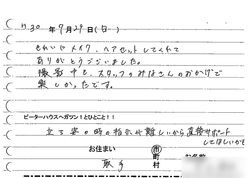 H30年9月29日(日)
きれいにメイク、ヘアセットしてくれて
ありがとうございました。
撮影中も、スタッフのみなさんのおかげで
楽しかったです。
ピーターパウスへガツン!ひとこと!!
立ち姿の時の指示が難しいから直接サポート
してほしいかも
お住まい
市
町
村